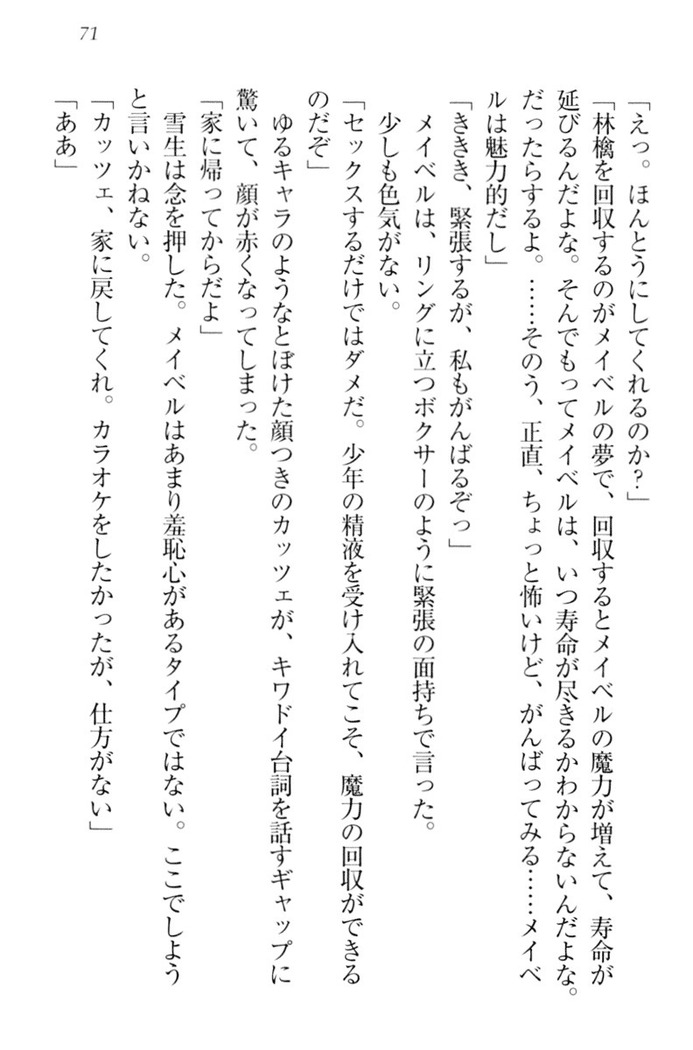 71
「えっ。ほんとうにしてくれるのか?」
「林檎を回収するのがメイベルの夢で、回収するとメイベルの魔力が増えて、寿命が
延びるんだよな。そんでもってメイベルは、いつ寿命が尽きるかわからないんだよな。
だったらするよ。……そのう、正直、ちょっと怖いけど、がんばってみる……メイベ
ルは魅力的だし」
「きききき、緊張するが、私もがんばるぞっ」
メイベルは、リングに立つボクサーのように緊張の面持ちで言った。
少しも色気がない。
「セックスするだけではダメだ。少年の精液を受け入れてこそ、魔力の回収ができる
のだぞ」
ゆるキャラのようなとぼけた顔つきのカッツェが、キワドイ台詞を話すギャップに
驚いて、顔が赤くなってしまった。
「家に帰ってからだよ」
雪生は念を押した。メイベルはあまり羞恥心があるタイプではない。ここでしよう
と言いかねない。
「カッツェ、家に戻してくれ。カラオケをしたかったが、仕方がない」
「ああ」